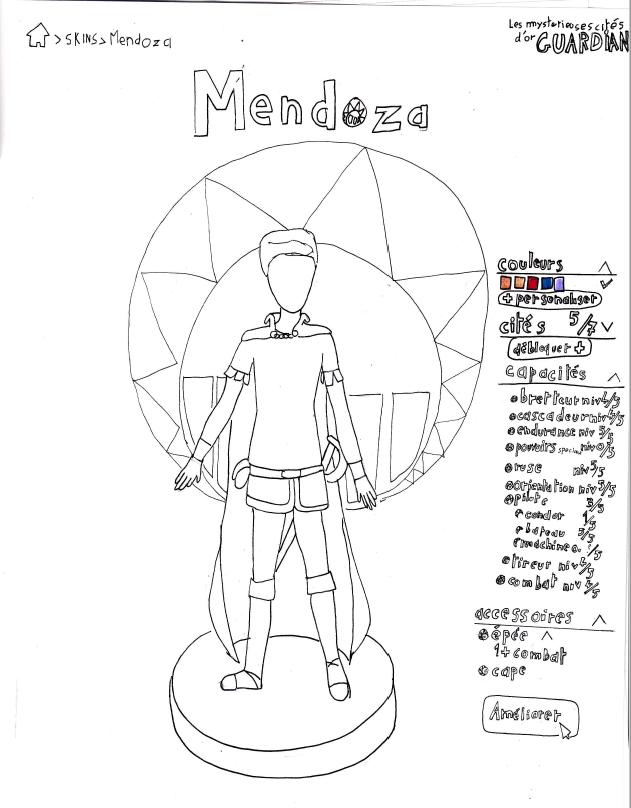 > SKINS > Mendoza
Les mystérieuses cités
d'or GUARDIAN
Mendoza
couleurs
+ personaliser
cités 5/7
débloquer +
capacités
bretteur niv 4/5
cascadeur niv 5/5
endurance niv 5/5
pouvoirs niv 0/5
ruse niv 5/5
orientation niv 5/5
pilote 3/5
condor 1/5
bateau 5/5
machine 1/5
tireur niv
combat niv
accessoires
épée
1+ combat
cape
Améliorer